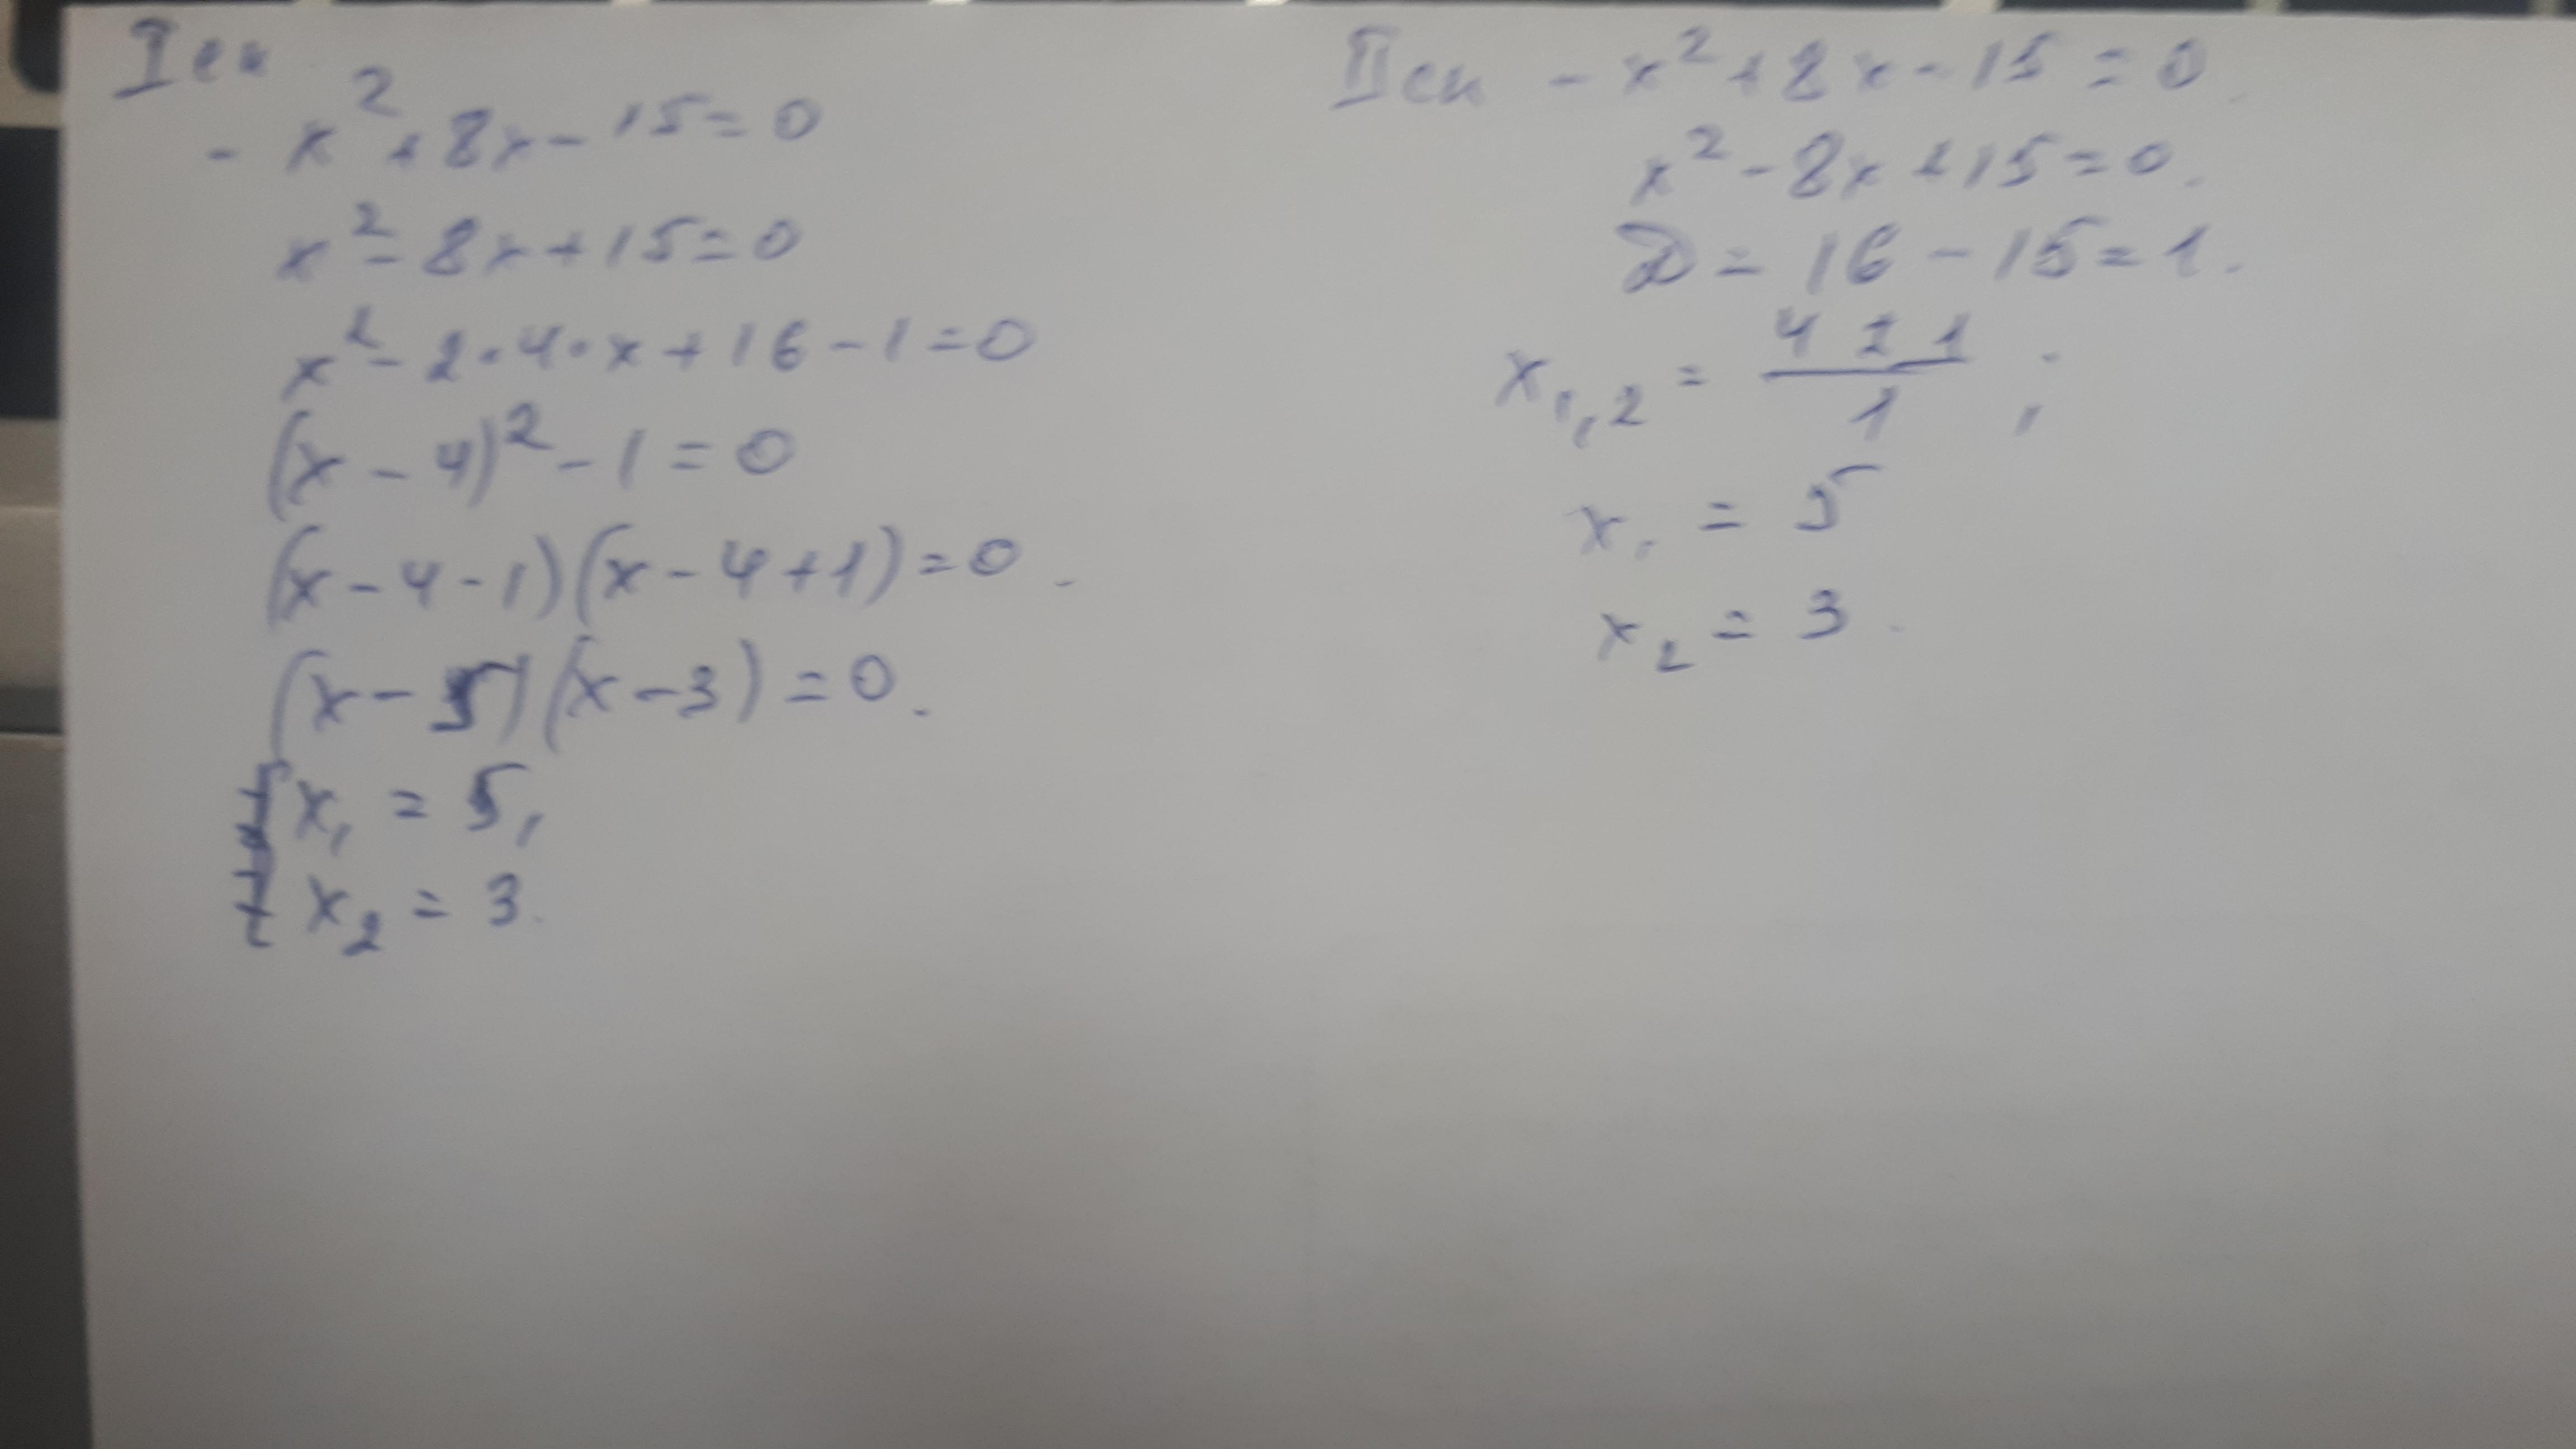 I сп
- x² + 8x - 15 = 0
x² - 8x + 15 = 0
x² - 2 · 4 · x + 16 - 1 = 0
(x - 4)² - 1 = 0
(x - 4 - 1)(x - 4 + 1) = 0.
(x - 5)(x - 3) = 0.
x₁ = 5,
x₂ = 3.
II сп - x² + 8x - 15 = 0.
x² - 8x + 15 = 0.
D = 16 - 15 = 1.
x₁,₂ = (4 ± 1)/1 ;
x₁ = 5
x₂ = 3.